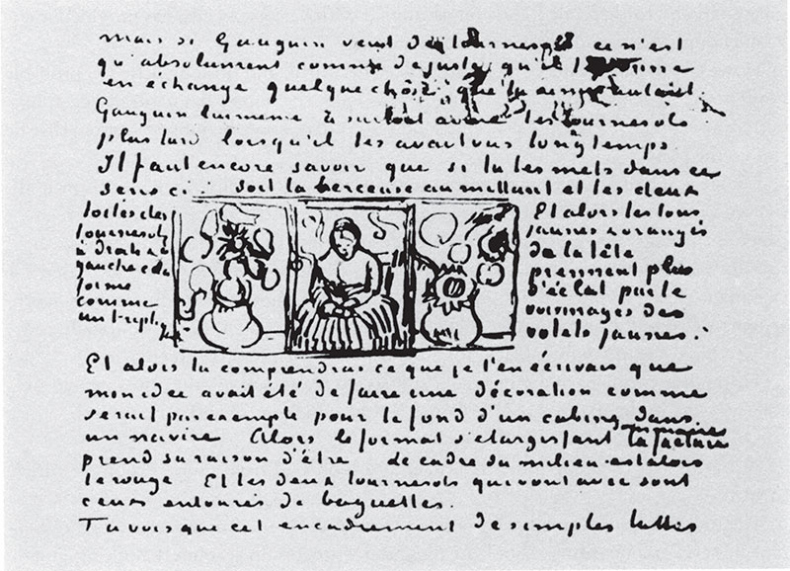 mais si Gauguin veut des tournesols ce n'est
qu'absolument comme de juste qu'il
en échange quelque chose que tu aimes autant.
Gauguin lui même a surtout aimé les tournesols
plus tard lorsqu'il les avait vus longtemps.
Il faut encore savoir que si tu les mets dans ce
sens ci : soit la berceuse au millieu et les deux
toiles des
tournesols
à droite & à
gauche cela
forme
comme
un triptique
Et alors les tons
jaunes & orangés
de la tête
prennent plus
d'éclat par le
voisinages des
volets jaunes.
Et alors tu comprendras ce que je t'en écrivais que
mon idée avait été de faire une décoration comme
serait par exemple pour le fond d'un cabine dans
un navire Alors le format s'elargissant la facture sommaire
prend sa raison d'être. Le cadre du milieu est alors
le rouge Et les deux tournesols qui vont avec sont
ceux entourés de baguettes.
Tu vois que cet encadrement de simples lattes